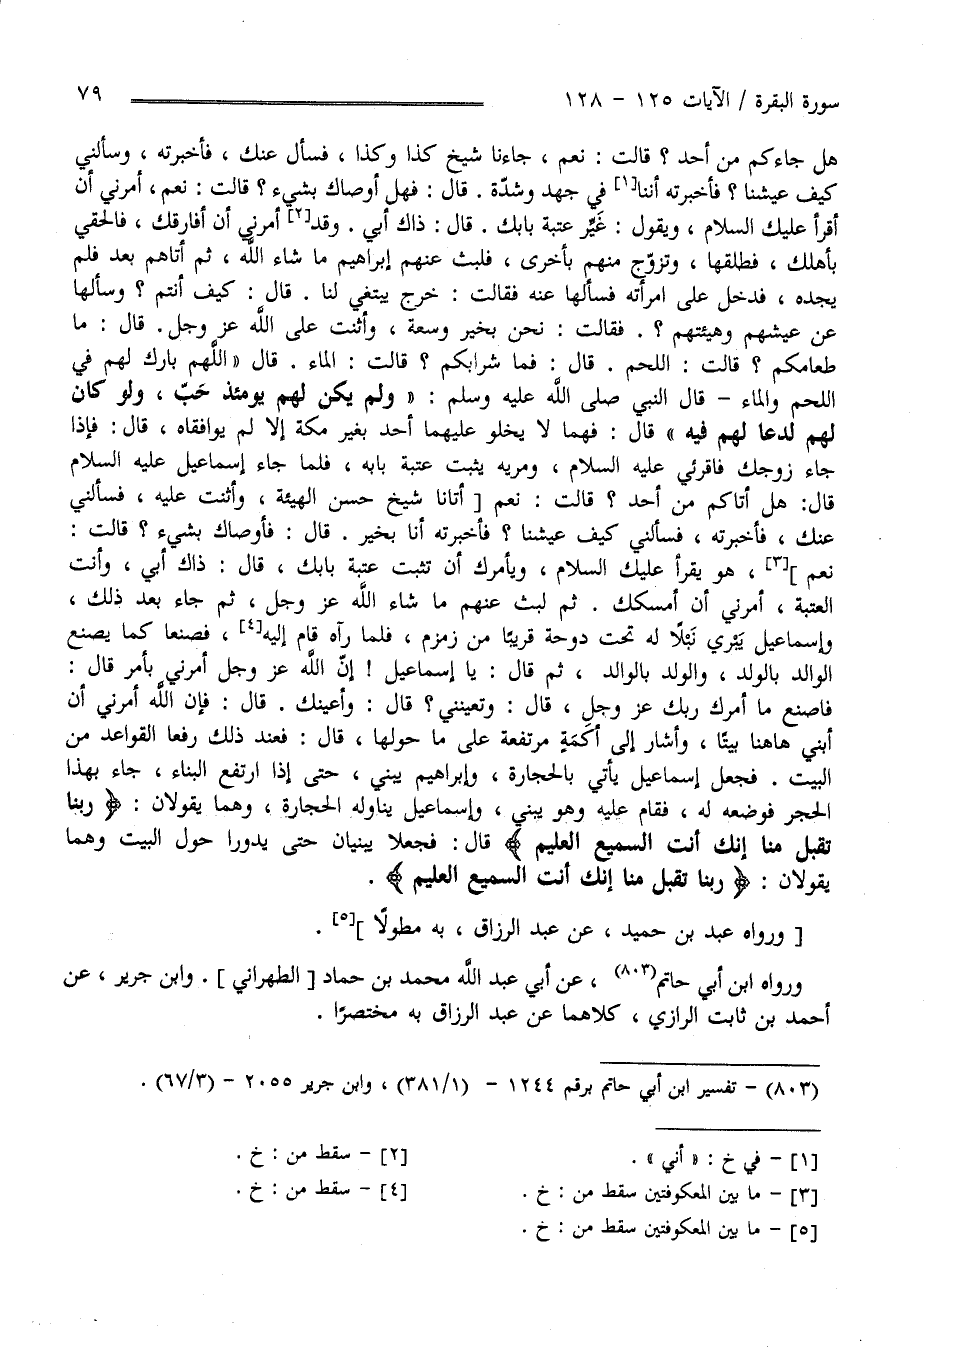 سورة البقرة / الآيات ١٢٥ - ١٢٨ ٧٩
هل جاءكم من أحد ؟ قالت : نعم ، جاءنا شيخ كذا وكذا ، فسأل عنك ، فأخبرته ، وسألني
كيف عيشنا ؟ فأخبرته أننا[١] في جهد وشدّة . قال : فهل أوصاك بشيء ؟ قالت : نعم، أمرني أن
أقرأ عليك السلام ، ويقول : غَيِّر عتبة بابك . قال : ذاك أبي . وقد[٢] أمرني أن أفارقك ، فالحقي
بأهلك ، فطلقها ، وتزوّج منهم بأخرى ، فلبث عنهم إبراهيم ما شاء اللَّه ، ثم أتاهم بعد فلم
يجده ، فدخل على امرأته فسألها عنه فقالت : خرج يبتغي لنا . قال : كيف أنتم ؟ وسألها
عن عيشهم وهيئتهم ؟ . فقالت : نحن بخير وسعة ، وأثنت على اللَّه عز وجل. قال : ما
طعامكم ؟ قالت : اللحم . قال : فما شرابكم ؟ قالت : الماء . قال « اللَّهم بارك لهم في
اللحم والماء - قال النبي صلى اللَّه عليه وسلم : « ولم يكن لهم يومئذ حَبّ ، ولو كان
لهم لدعا لهم فيه » قال : فهما لا يخلو عليهما أحد بغير مكة إلا لم يوافقاه ، قال: فإذا
جاء زوجك فاقرئي عليه السلام ، ومريه يثبت عتبة بابه ، فلما جاء إسماعيل عليه السلام
قال: هل أتاكم من أحد ؟ قالت : نعم [ أتانا شيخ حسن الهيئة ، وأثنت عليه ، فسألني
عنك ، فأخبرته ، فسألني كيف عيشنا ؟ فأخبرته أنا بخير . قال : فأوصاك بشيء ؟ قالت :
نعم ][٣] ، هو يقرأ عليك السلام ، ويأمرك أن تثبت عتبة بابك ، قال : ذاك أبي ، وأنت
العتبة ، أمرني أن أمسكك . ثم لبث عنهم ما شاء اللَّه عز وجل ، ثم جاء بعد ذلك ،
وإسماعيل يَبْري نَبْلًا له تحت دوحة قريبًا من زمزم ، فلما رآه قام إليه[٤] ، فصنعا كما يصنع
الوالد بالولد ، والولد بالوالد ، ثم قال : يا إسماعيل ! إنّ اللَّه عز وجل أمرني بأمر قال :
فاصنع ما أمرك ربك عز وجل ، قال : وتعينني؟ قال : وأعينك . قال : فإن اللَّه أمرني أن
أبني هاهنا بيتًا ، وأشار إلى أكَمَةٍ مرتفعة على ما حولها ، قال : فعند ذلك رفعا القواعد من
البيت . فجعل إسماعيل يأتي بالحجارة ، وإبراهيم يبني ، حتى إذا ارتفع البناء ، جاء بهذا
الحجر فوضعه له ، فقام عليه وهو يبني ، وإسماعيل يناوله الحجارة ، وهما يقولان : ﴿ ربنا
تقبل منا إنك أنت السميع العليم ﴾ قال: فجعلا يبنيان حتى يدورا حول البيت وهما
يقولان : ﴿ ربنا تقبل منا إنك أنت السميع العليم ﴾ .
[ ورواه عبد بن حميد ، عن عبد الرزاق ، به مطولًا ][٥] .
ورواه ابن أبي حاتم(٨٠٣) ، عن أبي عبد اللَّه محمد بن حماد [ الطهراني ] . وابن جرير ، عن
أحمد بن ثابت الرازي ، كلاهما عن عبد الرزاق به مختصرًا .
(٨٠٣) - تفسير ابن أبي حاتم برقم ١٢٤٤ - (٣٨١/١) ، وابن جرير ٢٠٥٥ - (٦٧/٣) .
[١] - في خ : « أني » . [٢] - سقط من : خ .
[٣] - ما بين المعكوفتين سقط من : خ . [٤] - سقط من : خ .
[٥] - ما بين المعكوفتين سقط من : خ .